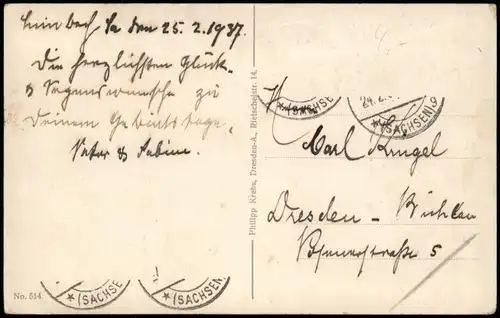 den 25.2.1937.
Die herzlichsten Glück-
& Segenswünsche zu
Deinem Geburtstage,
Vater &
Philipp Krebs, Dresden-A., Rietschelstr. 14.
No. 514
(SACHSE
(SACHSEN
(SACHSE
24.2.
(SACHSEN)
Herrn
Carl
Dresden - Bühlau
5